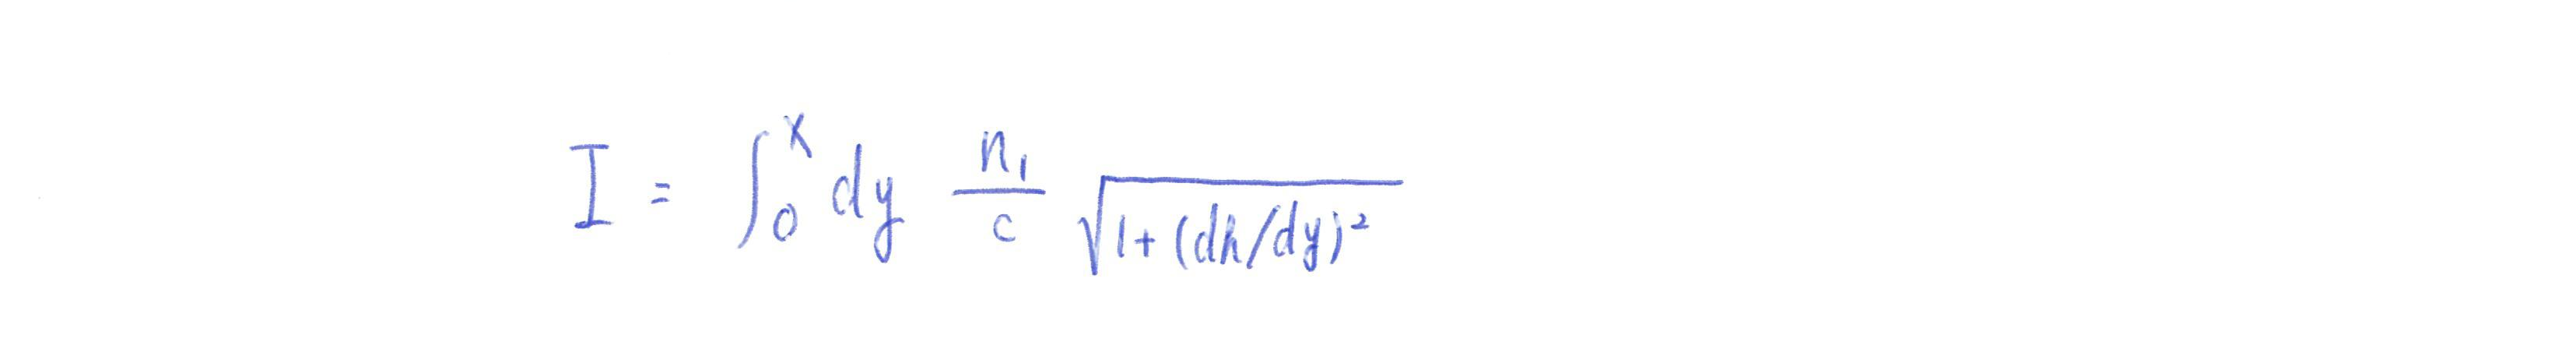 I = ∫₀ˣ dy n₁/c √(1+(dh/dy)²)